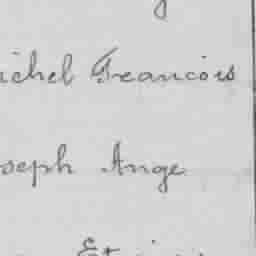 ichel Francois
oseph Ange